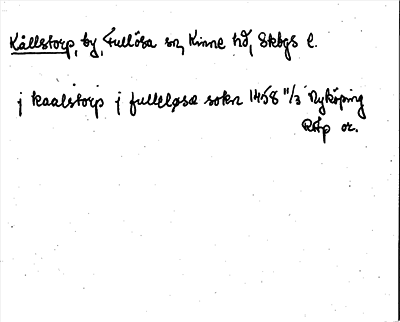 Kållstorp, by, Fullösa sn, Kinne hd, Skbgs l.
j kaalstorp j fulleløsæ sokn 1458 11/3 Nyköping
RAp or.